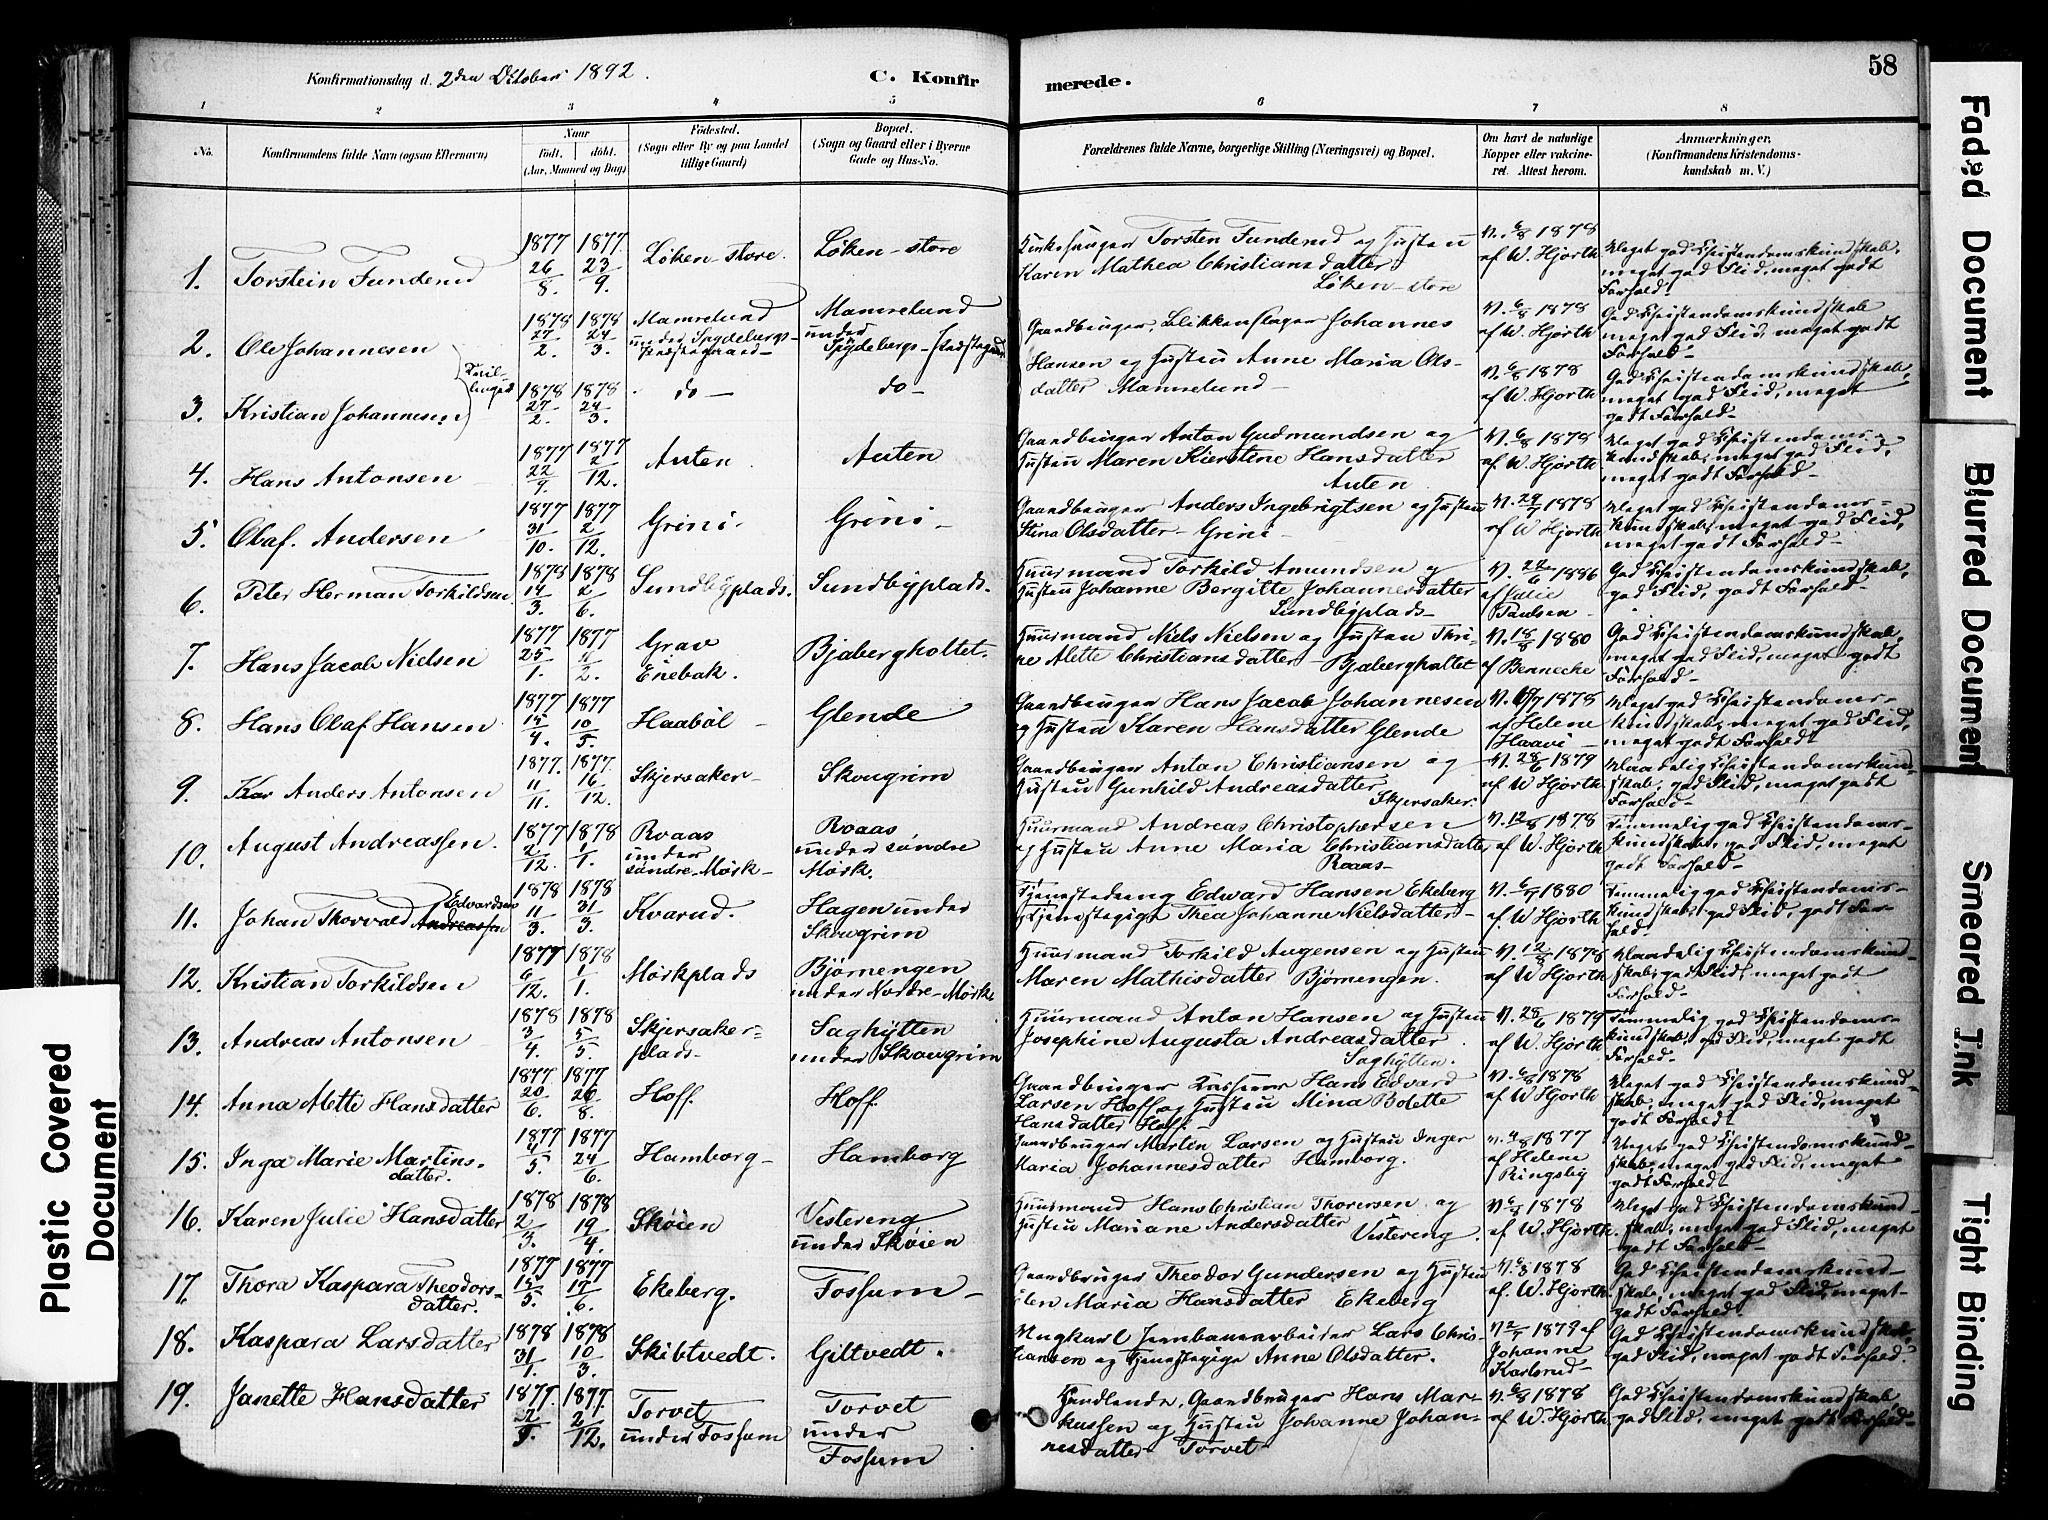 Konfirmationsdag d. 2den October 1892.
C. Konfir merede.
58
1 2 3 4 5 6 7 8
No.
Konfirmandens fulde Navn (ogsaa Efternavn)
Naar
født. døbt.
(Aar, Maaned og Dag)
Födested.
(Sogn eller By og paa Landet
tillige Gaard)
Bopæl.
(Sogn og Gaard eller i Byerne
Gade og Hus-No.
Forældrenes fulde Navne, borgerlige Stilling (Næringsvei) og Bopæl.
Om havt de naturlige
Kopper eller vakcine-
ret. Attest herom.
Anmærkninger,
(Konfirmandens Kristendoms-
kundskab m. V.)
1. Torstein Funderud 1877 26/8. 1877. 23/9. Løken-store. Løken-store
Kirkesanger Torsten Funderud og Hustru
Karen Mathea Christiansdatter
Løken-store
V. 6/8 1878
af W. Hjorth
Meget god Christendomskundskab,
meget god Flid, meget godt
Forhold-
2. Ole Johannesen 1878 27/2. 1878 24/3.
Mamrelund
under Spydebergs-
Præstegaard-
Mamrelund
under
Spydebergs-Præstegaard
Gaardbruger, Blikkenslager Johannes
Hansen og Hustru Anne Maria Ols-
datter Mamrelund-
V. 6/8 1878
af W. Hjorth
God Christendomskundskab
meget god Flid, meget godt
Forhold-
Tvil-
linger
3. Kristian Johannesen 1878 27/2. 1878 24/3. do- do-
V. 6/8 1878
af W. Hjorth
God Christendomskundskab,
meget god Flid, meget
godt Forhold-
4. Hans Antonsen 1877 22/9. 1877 2/12. Auten Auten
Gaardbruger Anton Gudmundsen og
Hustru Maren Kierstine Hansdatter
Auten
V. 6/8 1878
af. W. Hjorth
Meget god Christendoms-
kundskab, meget god Flid,
meget godt Forhold-
5. Olaf. Andersen 1877 31/10. 1877 2/12. Grini- Grini-
Gaardbruger Anders Ingebrigtsen og Hustru
Stina Olsdatter-Grini-
V. 29/7 1878
af W. Hjorth
Meget god Christendoms-
kundskab, meget god Flid,
meget godt Forhold-
6. Peter Herman Torkildsen 1878 14/3. 1878 2/6. Sundbyplads. Sundbyplads.
Huusmand Torkild Amundsen og
Hustru Johanne Bergitte Johannesdatter
Sundbyplads-
V. 22/6 1886
af Julie
Paulsen-
God Christendomskundskab,
god Flid, godt Forhold-
7. Hans Jacob Nielsen 1877 25/1. 1877 11/2.
Grav
Enebak.
Bjabergholtet.
Huusmand Niels Nielsen og Hustru Thri-
ne Alette Christiansdatter-Bjaberghaltet
V. 18/8 1880
af Bennecke
God Christendomskundskab,
meget god Flid, meget godt
Forhold-
8. Hans Olaf Hansen 1877 15/4. 1877 10/5. Haabøl- Glende
Gaardbruger Hans Jacob Johannesen
og Hustru Karen Hansdatter Glende
1878
af Helene
Haavi-
Meget god Christendoms-
kundskab, meget god Flid,
meget godt Forhold
9. Kar Anders Antonsen 1877. 11/11. 1877. 16/12. Skjersaker- Skougrim
Gaardbruger Anton Christiansen og
Hustru Gunhild Andreasdatter
Skjersaker.
V. 28/6 1879
af W. Hjorth
Maadelig Christendomskund-
skab, god Flid, meget godt
Forhold-
10. August Andreassen. 1877 2/12. 1878 1/1.
Roaas
under
søndre-Mørk-
Roaas
under søndre
Mørk.
Huusmand Andreas Christophersen
og Hustru Anne Maria Christiansdatter
Roaas-
V. 12/8 1878
af W. Hjorth
Temmelig god Christendoms-
kundskab, god Flid, meget
godt Forhold-
11. Johan Thorvald Andreassen Edvardsen 1878 11/3. 1878 31/3. Kvarud.
Hagen under
Skougrim
Tjenestedreng Edward Hansen Ekeberg
Tjenestepige Thea Johanne Nielsdatter-
1880
af. W. Hjorth
Temmelig god Christendoms-
kundskab, god Flid, godt For-
hold-
12. Kristian Torkildsen 1877 6/12. 1878 1/1. Mørkplads
Bjørnengen
under Nordre-Mørk
Huusmand Torkild Augensen og Hustru
Maren Mathisdatter Bjørnengen.
V. 12/8 1878
af W. Hjorth
Maadelig Christendomskund-
skab, god Flid, meget godt
Forhold-
13. Andreas Antonsen 1878 3/4. 1878 5/5.
Skjersaker-
plads-
Saghytten
under Skougrim
Huusmand Anton Hansen og Hustru
Josephine Augusta Andreasdatter
Saghytten.
V. 28/6 1879
af W. Hjorth
Temmelig god Christendoms-
kundskab, god Flid, meget godt
Forhold-
14. Anna Mette Hansdatter 1877. 20/6. 1877 26/8. Hoff. Hoff.
Gaardbruger Hans Edvard
Larsen Hoff og Hustru Mina Bolette
Hansdatter Hoff-
V. 6/8 1878
af W. Hjorth
Meget god Christendomskund-
skab, meget god Flid, meget
godt Forhold
15. Inga Marie Martins-
datter. 1877 4/5. 1877 24/6. Hamborg- Hamborg
Gaardbruger Martin Larsen og Hustru Inger
Maria Johannesdatter Hamborg.
V. 4/8 1877
af Helene
Ringsby
Meget god Christendomskund-
skab, meget god Flid, meget
godt Forhold-
16. Karen Julie Hansdatter 1878 2/3. 1878 19/4. Skøien
Vestereng
under Skøien
Huusmand Hans Christian Thoresen og
Hustru Mariane Andersdatter
Vestereng.
1878
af W. Hjorth
Meget god Christendomskund-
skab, meget god Flid, meget
godt Forhold-
17. Thora Kaspara Theodors-
datter. 1877 15/5. 1877 17/6. Ekeberg. Fossum-
Gaardbruger Theodor Gundersen og Hustru
Elen Maria Hansdatter Ekeberg
V. 6/8 1878
af. W. Hjorth
God Christendomskund-
skab, meget god Flid, meget
godt Forhold.
18. Kaspara Larsdatter 1878 31/1. 1878 10/3. Skibtvedt. Giltvedt.
Ungkarl Jernbanearbeider Lars Chris-
tiansen og Tjenestepige Anne Olsdatter.
1879 af
Johanne
Karlsrud-
God Christendomskundskab,
god Flid, meget godt Forhold
19. Janette Hansdatter 1877. 2/9. 1877. 2/12.
Torvet
under Fossum
Torvet
under
Fossum
Handlende, Gaardbruger Hans Mar-
kussen og Hustru Johanne Johan-
nesdatter-Torvet-
V. 6/8 1878
af W. Hjorth
God Christendomskundskab,
god Flid, meget godt Forhold-
Plastic Covered
Document
Faded Document
Blurred Document
Smeared Ink
Tight Binding